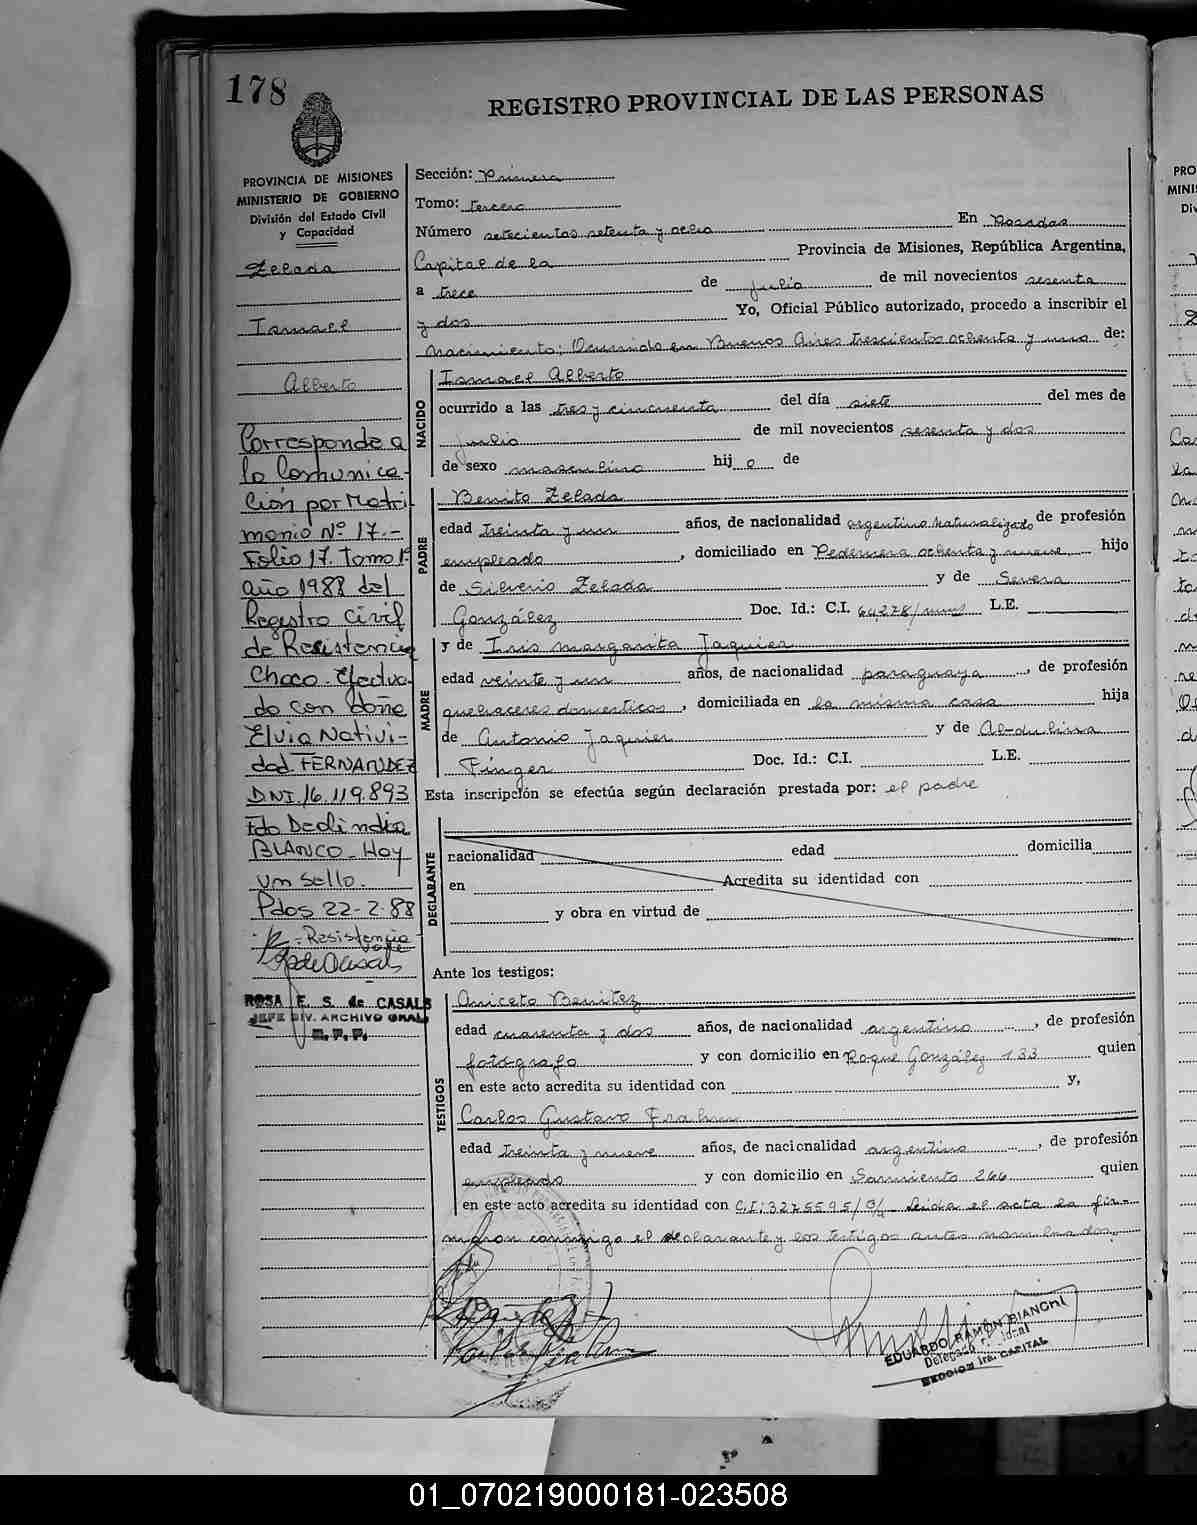 178
REGISTRO PROVINCIAL DE LAS PERSONAS
PROVINCIA DE MISIONES
MINISTERIO DE GOBIERNO
División del Estado Civil
y Capacidad
Zelada
Ismael
Alberto
Corresponde a
la Comunica-
ción por Matri-
monio Nº 17.-
Folio 17. Tomo 1º
año 1988 del
Registro Civil
de Resistencia
Chaco. Efectua-
do con doña
Elvia Nativi-
dad FERNANDEZ
DNI.16.119.893
Fdo Deolindia
BLANCO. Hoy
un sello.
Pdos 22-2-88
Resistencia
vale
ROSA E. S. de CASALS
JEFE DIV. ARCHIVO GRAL.
R. P. P.
Sección: Primera
Tomo: tercero
Número setecientos setenta y ocho En Posadas
Capital de la Provincia de Misiones, República Argentina,
a trece de julio de mil novecientos sesenta
y dos Yo, Oficial Público autorizado, procedo a inscribir el
nacimiento; Ocurrido en Buenos Aires trescientos ochenta y uno de:
NACIDO
Ismael Alberto
ocurrido a las tres y cincuenta del día siete del mes de
julio de mil novecientos sesenta y dos
de sexo masculino hijo de
PADRE
Benito Zelada
edad treinta y un años, de nacionalidad argentino naturalizado de profesión
empleado, domiciliado en Pedernera ochenta y nueve hijo
de Silverio Zelada y de Severa
González Doc. Id.: C.I. 64,278/ L.E.
MADRE
y de Iris Margarita Jaquier
edad veinte y un años, de nacionalidad paraguaya, de profesión
quehaceres domesticos, domiciliada en la misma casa hija
de Antonio Jaquier y de
Finger Doc. Id.: C.I. L.E.
Esta inscripción se efectúa según declaración prestada por: el padre
DECLARANTE
nacionalidad edad domicilia
en Acredita su identidad con
y obra en virtud de
Ante los testigos:
TESTIGOS
Aniceto Benitez
edad cuarenta y dos años, de nacionalidad argentino, de profesión
fotografo y con domicilio en Roque González 133 quien
en este acto acredita su identidad con y,
Carlos Gustavo
edad treinta y nueve años, de nacionalidad argentino, de profesión
empleado y con domicilio en Sarmiento 266 quien
en este acto acredita su identidad con C.I: 3275595/ Leida el acta la fir-
maron conmigo el declarante y los testigos antes nombrados.
EDUARDO RAMÓN BIANCHI
Delegado
SECCION 1ra. CAPITAL
PRO
MINI
Div
01_070219000181-023508